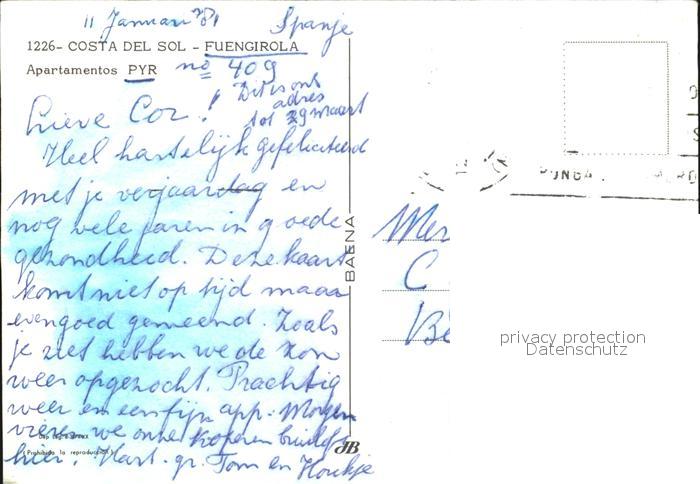 11 Januari '81 Spanje
1226- COSTA DEL SOL - FUENGIROLA
Apartamentos PYR no 409
Dit is ons
adres
tot 29 maart
Lieve Cor!
Heel hartelijk gefeliciteerd
met je verjaardag en
nog vele jaren in goede
gezondheid. Deze kaart
komt niet op tijd maar
evengoed gemeend. Zoals
je ziet hebben we de zon
weer opgezocht. Prachtig
weer en een fijn app. Morgen
vieren we onze koperen bruiloft
(Prohibida la reproducción)
hier. Hart. gr. Tom en
BAENA
JB
Mer
C
Be
privacy protection
Datenschutz